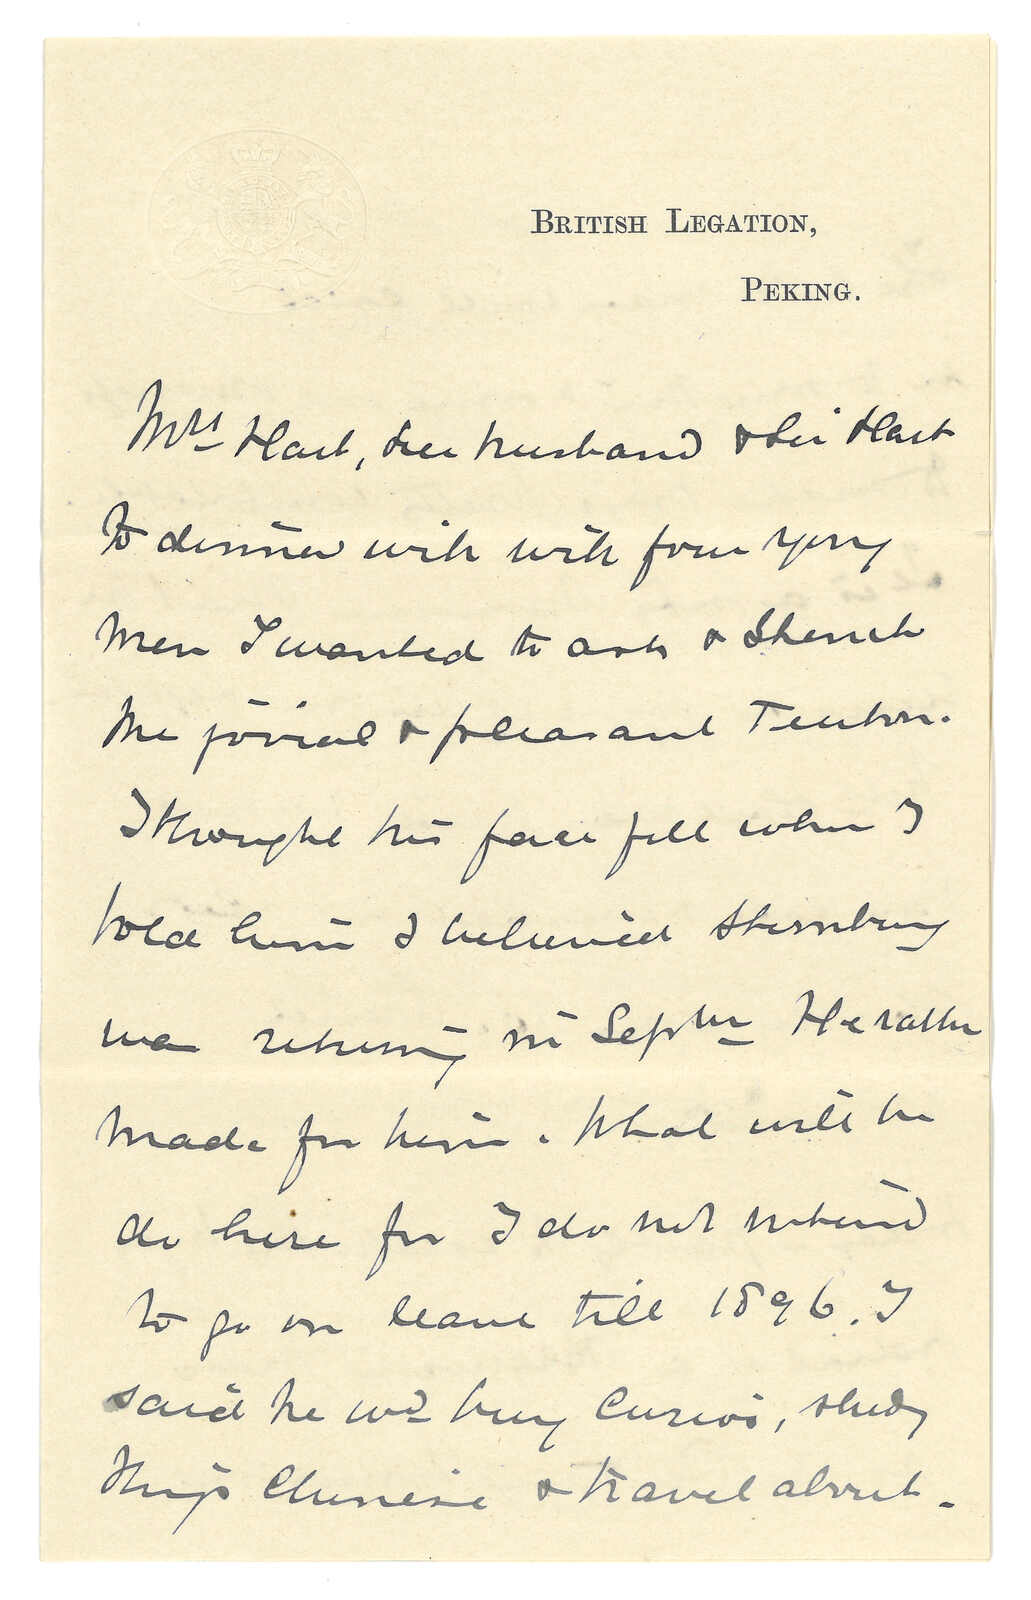 BRITISH LEGATION,
PEKING.
Mrs Hart, her husband & Sir Hart
to dinner with with four yong
men I wanted to ask & Skenck
the jovial & pleasant Teuton.
I thought his face fell when I
told him I believed Sternburg
was returning in Septbr He rather
made for him. What will he
do here for I do not intend
to go on leave till 1896. I
said he wd buy Curios, study
things Chinese & travel about.